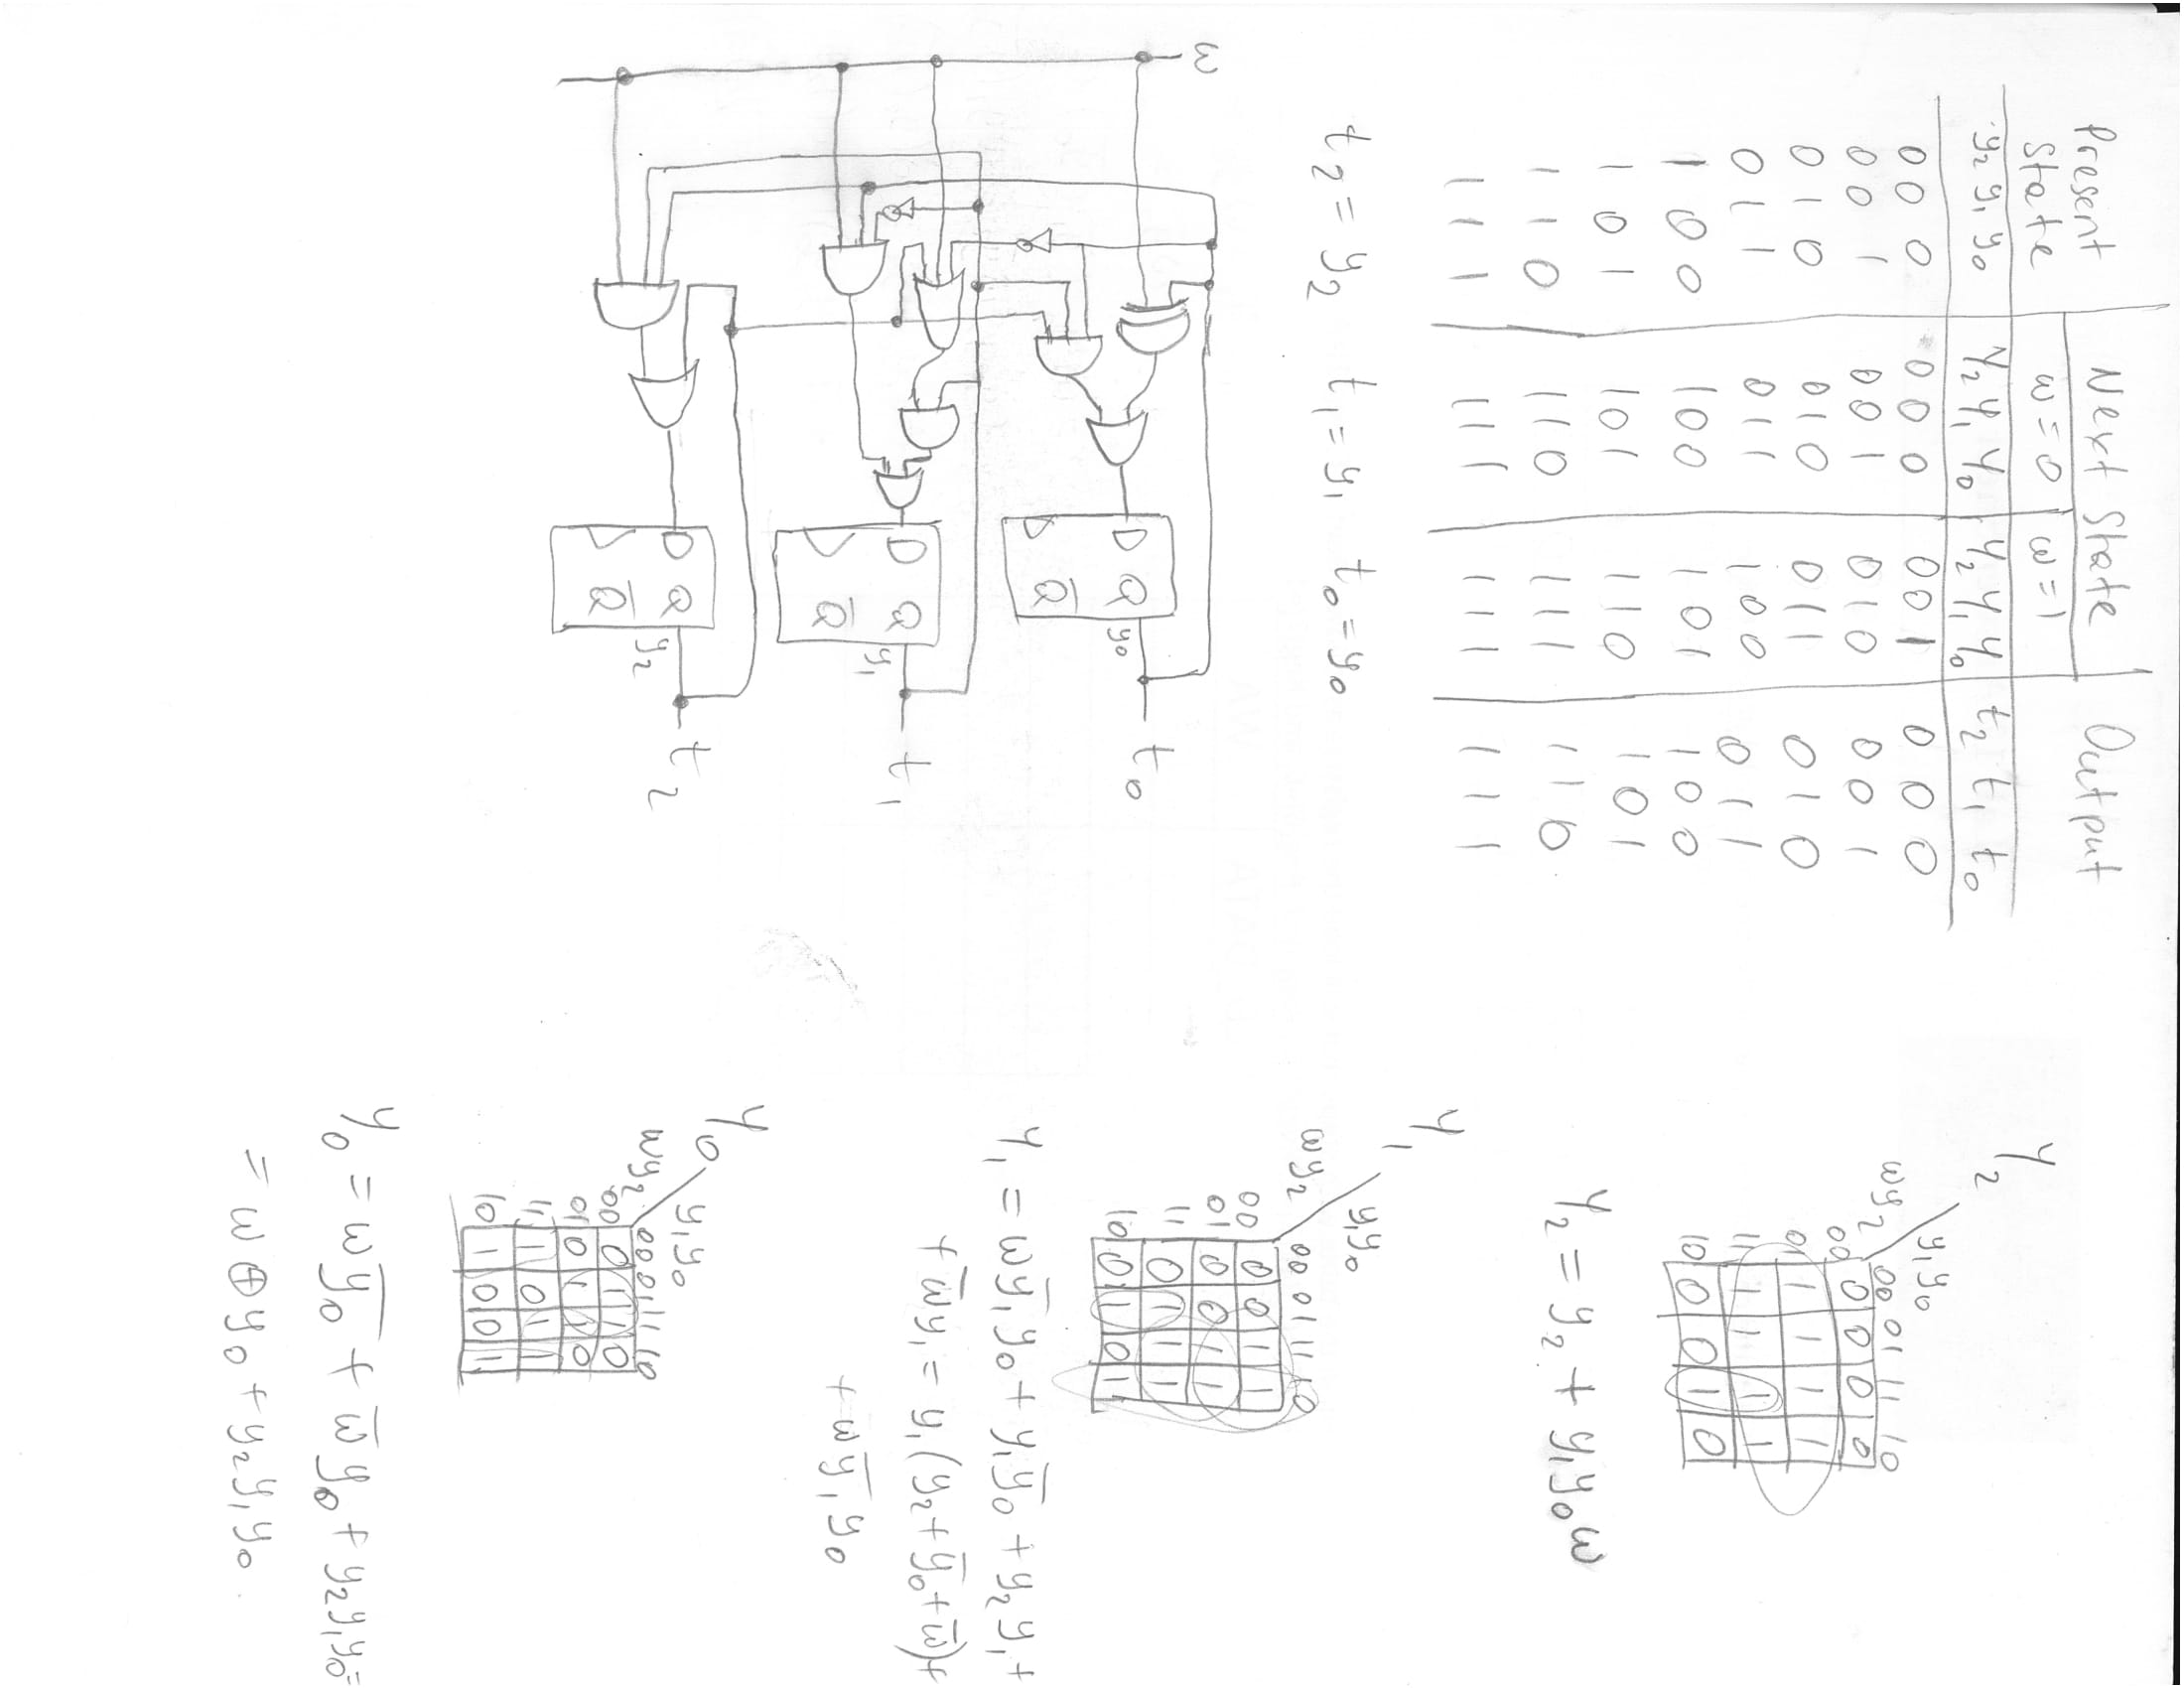 Present State | Next State | Output
w=0 | w=1
y₂ y₁ y₀ | Y₂ Y₁ Y₀ | Y₂ Y₁ Y₀ | t₂ t₁ t₀
0 0 0 | 0 0 0 | 0 0 1 | 0 0 0
0 0 1 | 0 0 1 | 0 1 0 | 0 0 1
0 1 0 | 0 1 0 | 0 1 1 | 0 1 0
0 1 1 | 0 1 1 | 1 0 0 | 0 1 1
1 0 0 | 1 0 0 | 1 0 1 | 1 0 0
1 0 1 | 1 0 1 | 1 1 0 | 1 0 1
1 1 0 | 1 1 0 | 1 1 1 | 1 1 0
1 1 1 | 1 1 1 | 1 1 1 | 1 1 1
t₂ = y₂ t₁ = y₁ t₀ = y₀
w
D Q y₀ t₀
Q̅
D Q y₁ t₁
Q̅
D Q y₂ t₂
Q̅
Y₂
y₁y₀
wy₂ 00 01 11 10
00 0 0 0 0
01 1 1 1 1
11 1 1 1 1
10 0 0 1 0
Y₂ = y₂ + y₁y₀w
Y₁
y₁y₀
wy₂ 00 01 11 10
00 0 0 1 1
01 0 0 1 1
11 0 1 1 1
10 0 1 0 1
Y₁ = w y̅₁ y₀ + y₁ y̅₀ + y₂ y₁ +
+ w̅y₁ = y₁(y₂ + y̅₀ + w̅) +
+ w y̅₁ y₀
Y₀
y₁y₀
wy₂ 00 01 11 10
00 0 1 1 0
01 0 1 1 0
11 1 0 1 1
10 1 0 0 1
Y₀ = w y̅₀ + w̅ y₀ + y₂y₁y₀ =
= w ⊕ y₀ + y₂y₁y₀